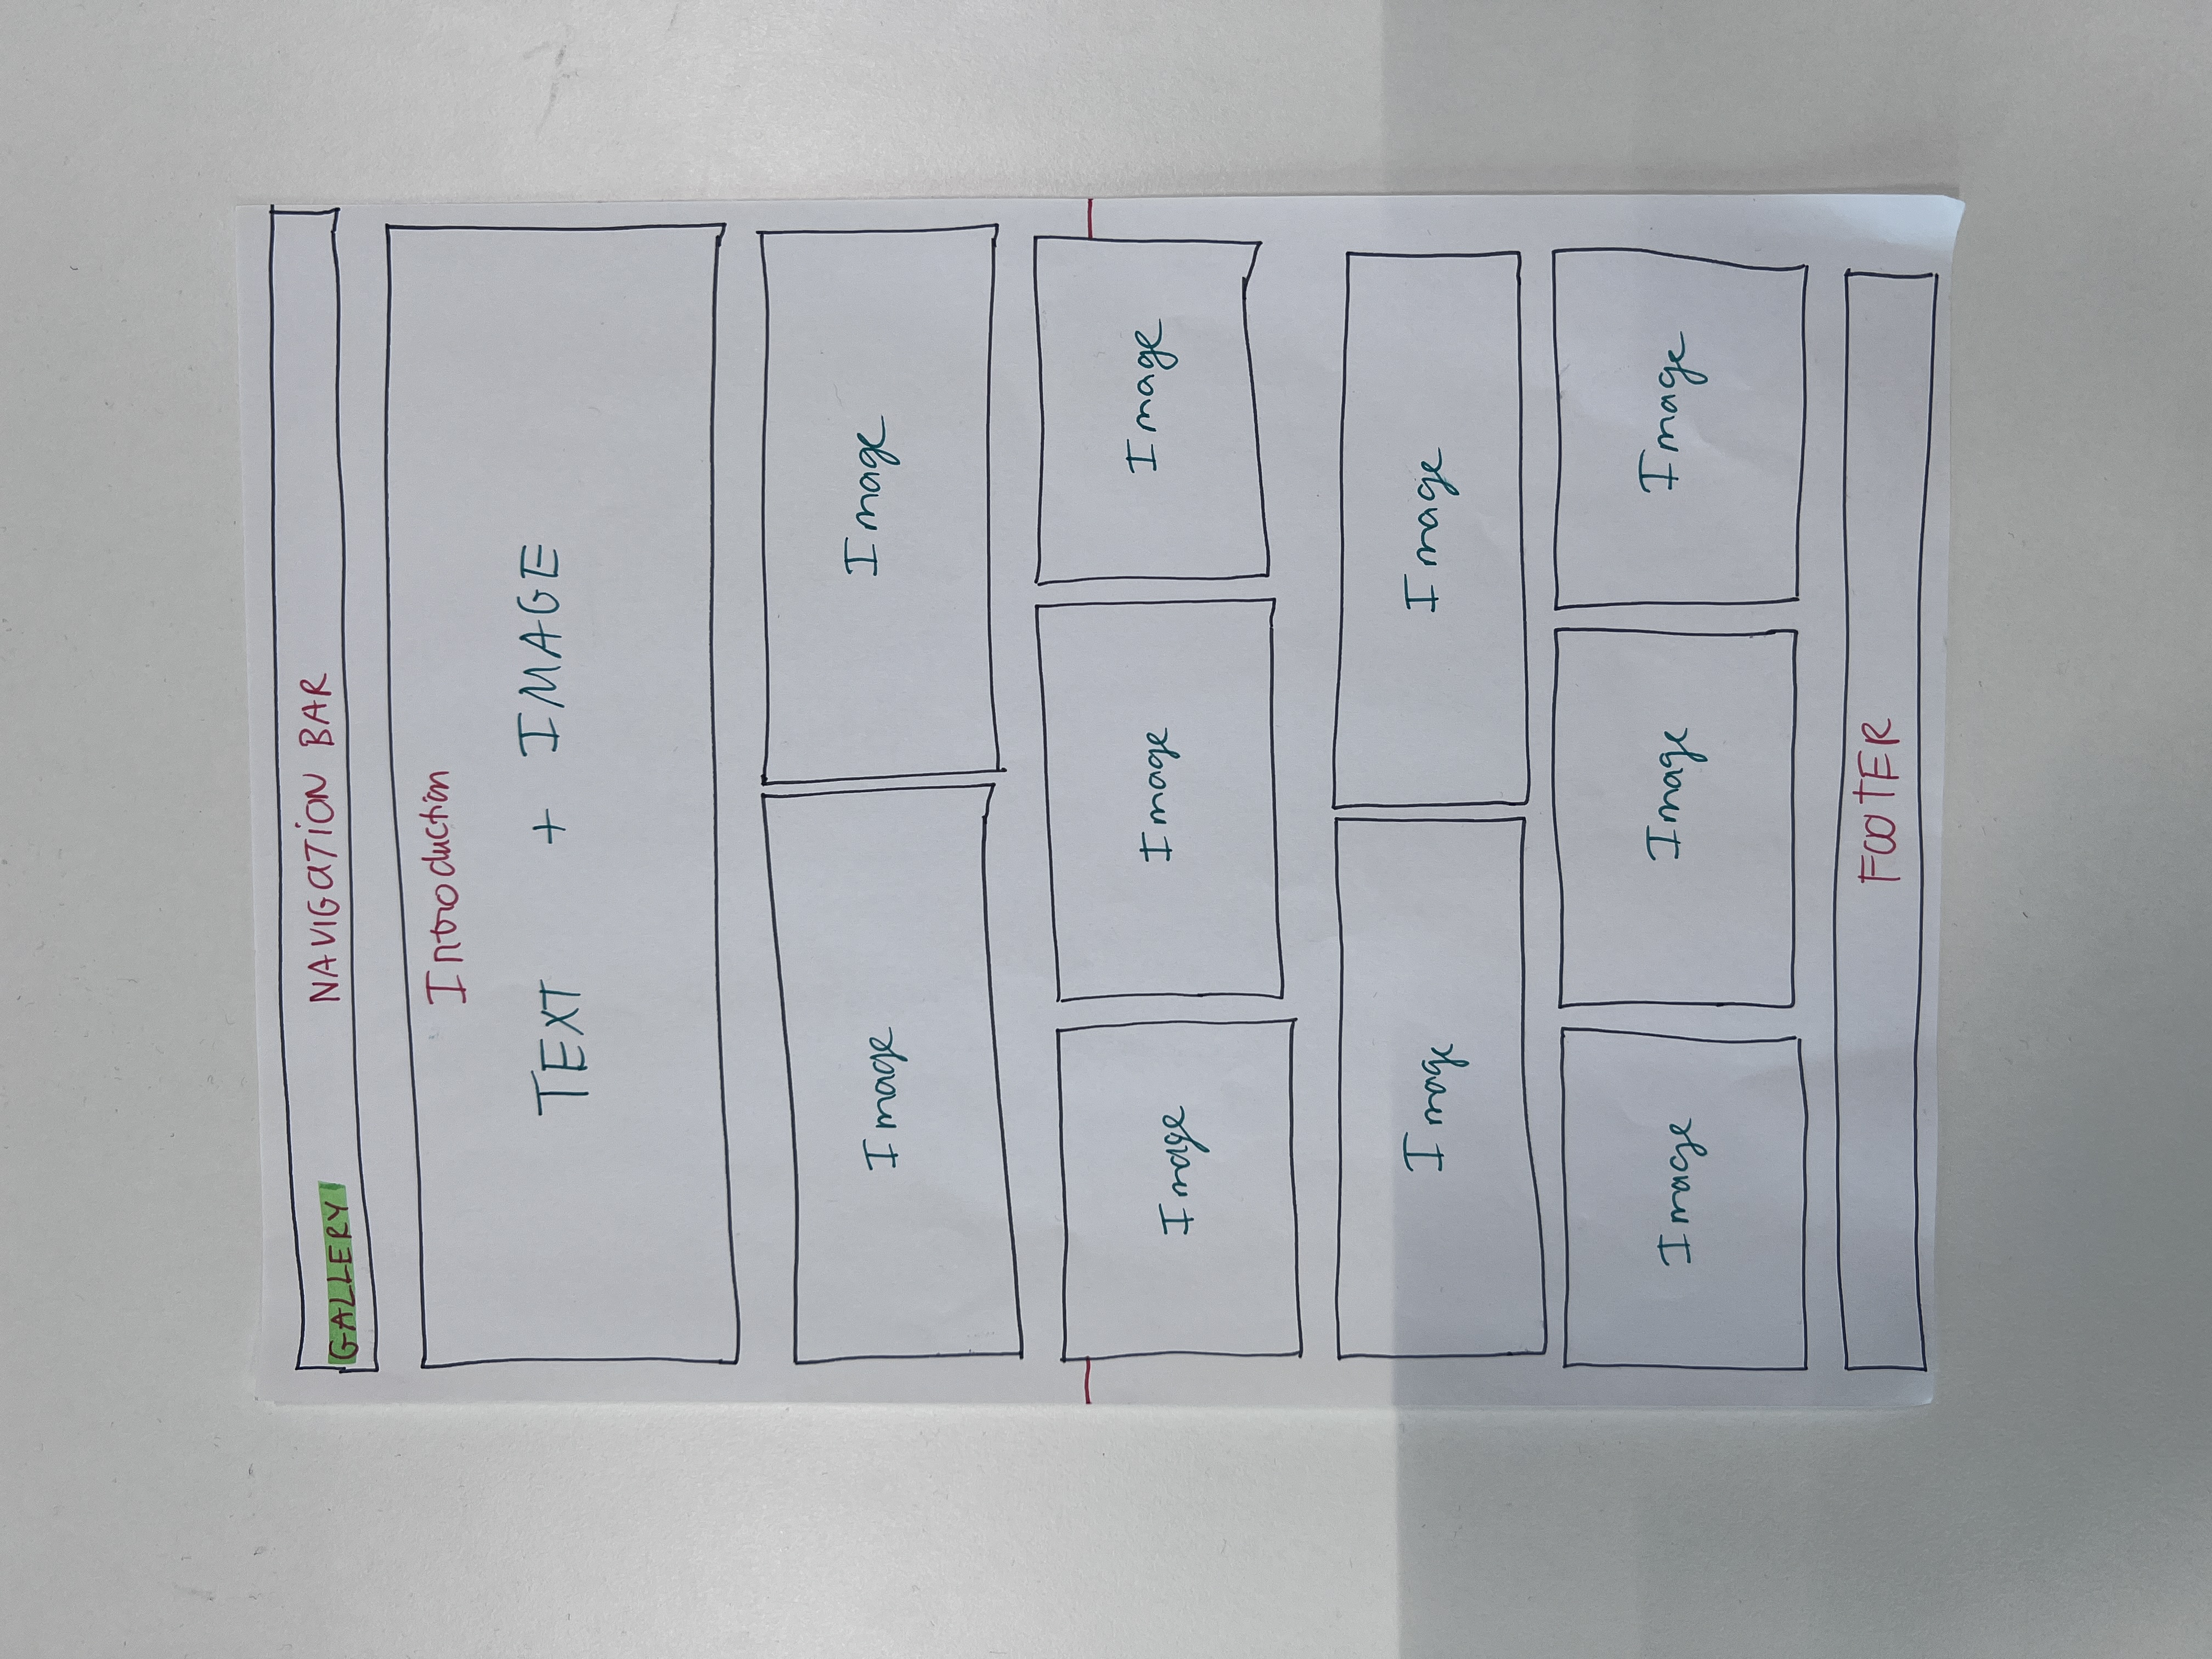 NAVIGATION BAR
GALLERY
Introduction
TEXT + IMAGE
Image Image
Image Image Image
Image Image
Image Image Image
FOOTER